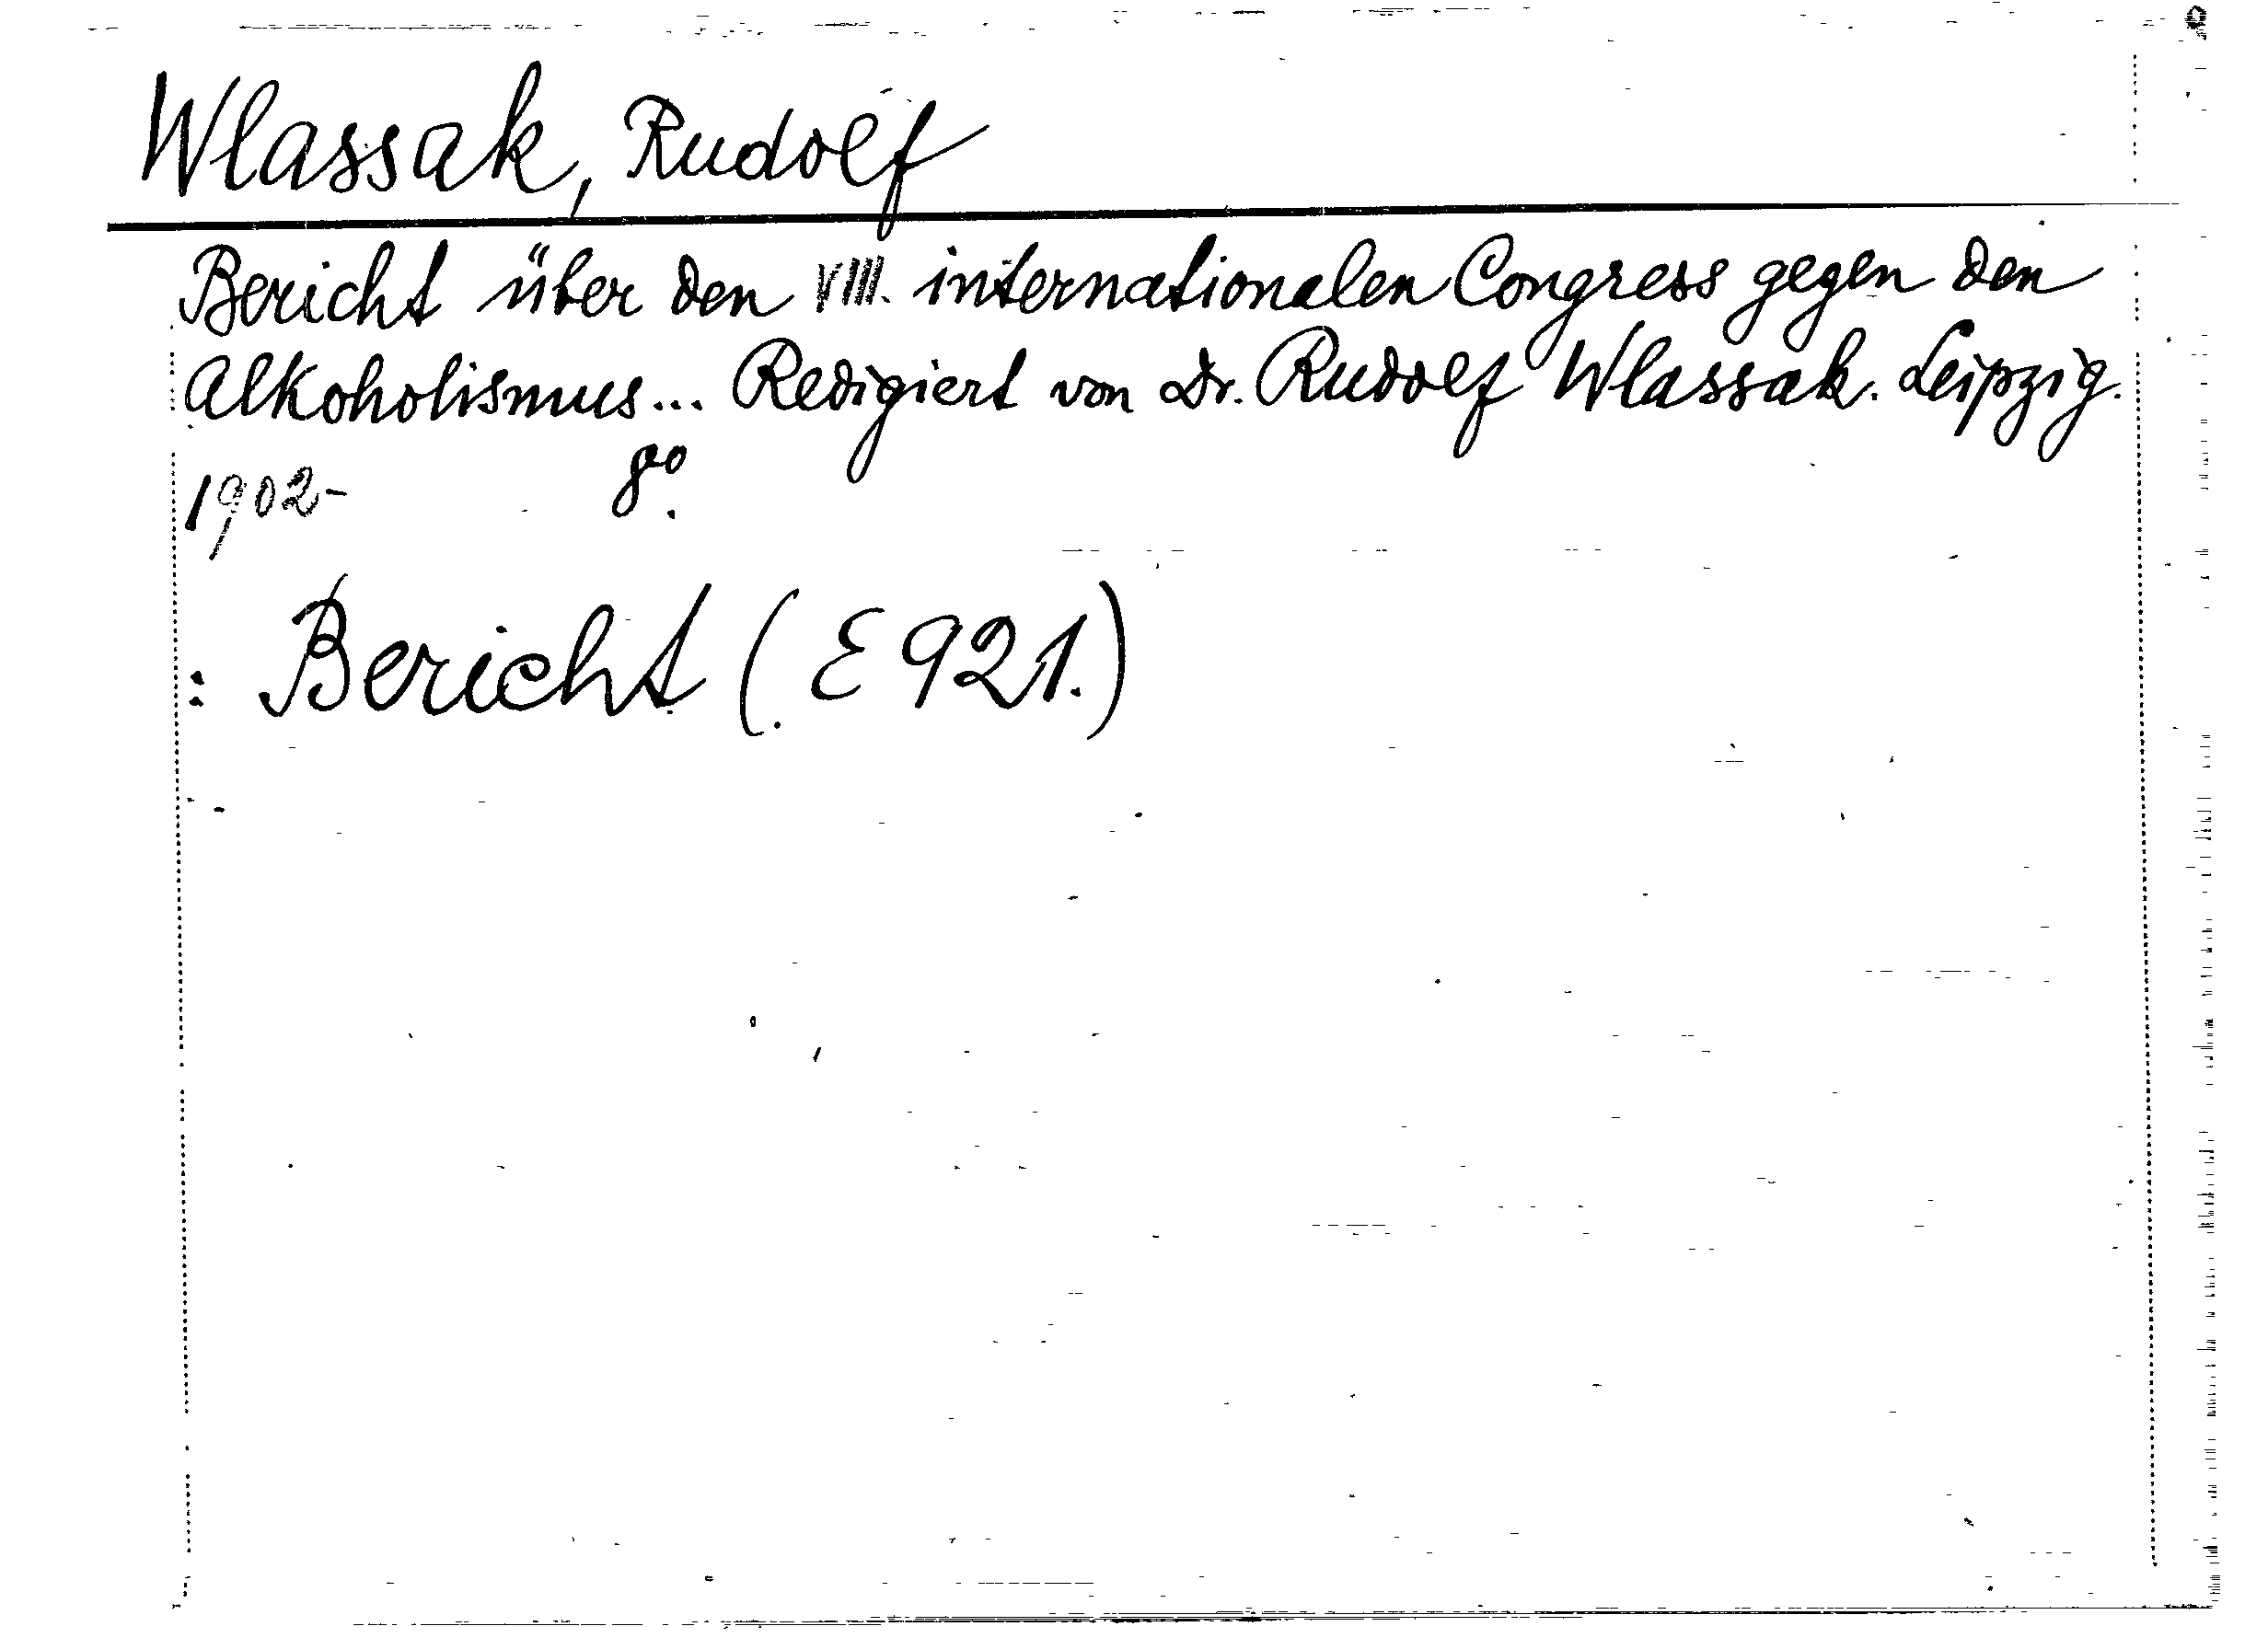 Wlassak, Rudolf
Bericht über den VIII. internationalen Congress gegen den
Alkoholismus... Redigiert von Dr. Rudolf Wlassak. Leipzig.
1902- 8º.
: Bericht (. E 921.)